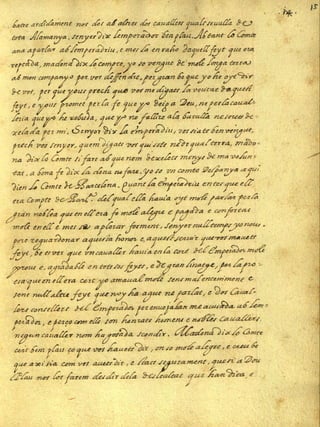 15
batre ardidament nos dos ab altres dos cauallers quals se vulla de
terra Alamanya, senyer dix lemperador ben plau. Ab tant lo Comte
ana a parlar ab lemperadriu, e mes la en raho daquell feyt que era
reptada, madona dix lo compte, yo so vengut de molt longa terra
ab mon companyo per vos deffendre, per gran be que yo he oyt dir
de vos, per que yous prech que vos me digats la veritat daquest
feyt, e yous promet per la fe que yo deig a Deu, ne per la caual-
leria que yo he rebuda, que yo no fallire a la batalla ne sereu de-
celada per mi. Senyor dix la emperadriu, vos siats ben vengut,
prech vos senyer, quem digats vos qui sots ne de qual terra, mado-
na dix lo Comte si fare ab que nom decelets menys de ma volun-
tat, a bona fe dix la dona no fare. Yo so un comte Despanya a qui
dien lo Comte de Barcelona. Quant la Emperadriu entes que ell
era Compte de Barl.ª del qual ella hauia oyt molt parlar per la
gran noblea que en ell era fo molt alegre e pagada e confortas
molt en ell e mes se a plorar forment, senyer null temps yo nous
pore reguardonar aquesta honor e aquest seruir que vos mauets
feyt, be es ver que un caualler hauia en la cort del Emperador molt
prous e agradable en tots sos feyts, e de gran linatge, per la pro-
esa que en ell era cert yo amaual molt sens mal enteniment e
sens null altre feyt que no y ha agut ne parlat, e dos Caual-
lers consellers del Emperador per enueja lan me acusada ab lem-
perador, e perço com ells son honrats homens e nobles cauallers,
negun caualler nom ha gosada scondir. Madona dix lo Comte
cert ben plau ço que vos hauets dit, en so molt alegre, e creu be
que axi sia com vos auets dit, e stats segurament, que si a Deu
plau nos los farem desdir de la deslealtat que han dita, e